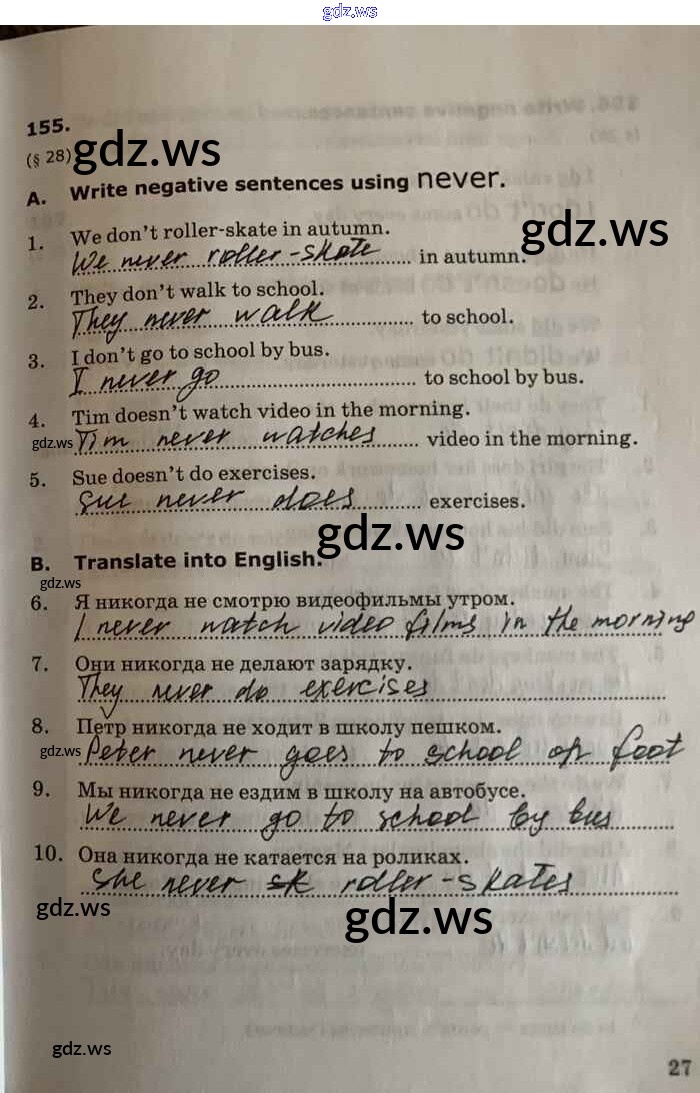 gdz.ws
155.
(§ 28) gdz.ws
A. Write negative sentences using never.
1. We don't roller-skate in autumn.
gdz.ws
We never roller-skate in autumn.
2. They don't walk to school.
They never walk to school.
3. I don't go to school by bus.
I never go to school by bus.
4. Tim doesn't watch video in the morning.
gdz.ws
Tim never watches video in the morning.
5. Sue doesn't do exercises.
Sue never does exercises.
gdz.ws
B. Translate into English.
gdz.ws
6. Я никогда не смотрю видеофильмы утром.
I never watch video films in the morning
7. Они никогда не делают зарядку.
They never do exercises
8. Петр никогда не ходит в школу пешком.
gdz.ws
Peter never goes to school on foot
9. Мы никогда не ездим в школу на автобусе.
We never go to school by bus
10. Она никогда не катается на роликах.
She never sk roller-skates
gdz.ws
gdz.ws
gdz.ws
27